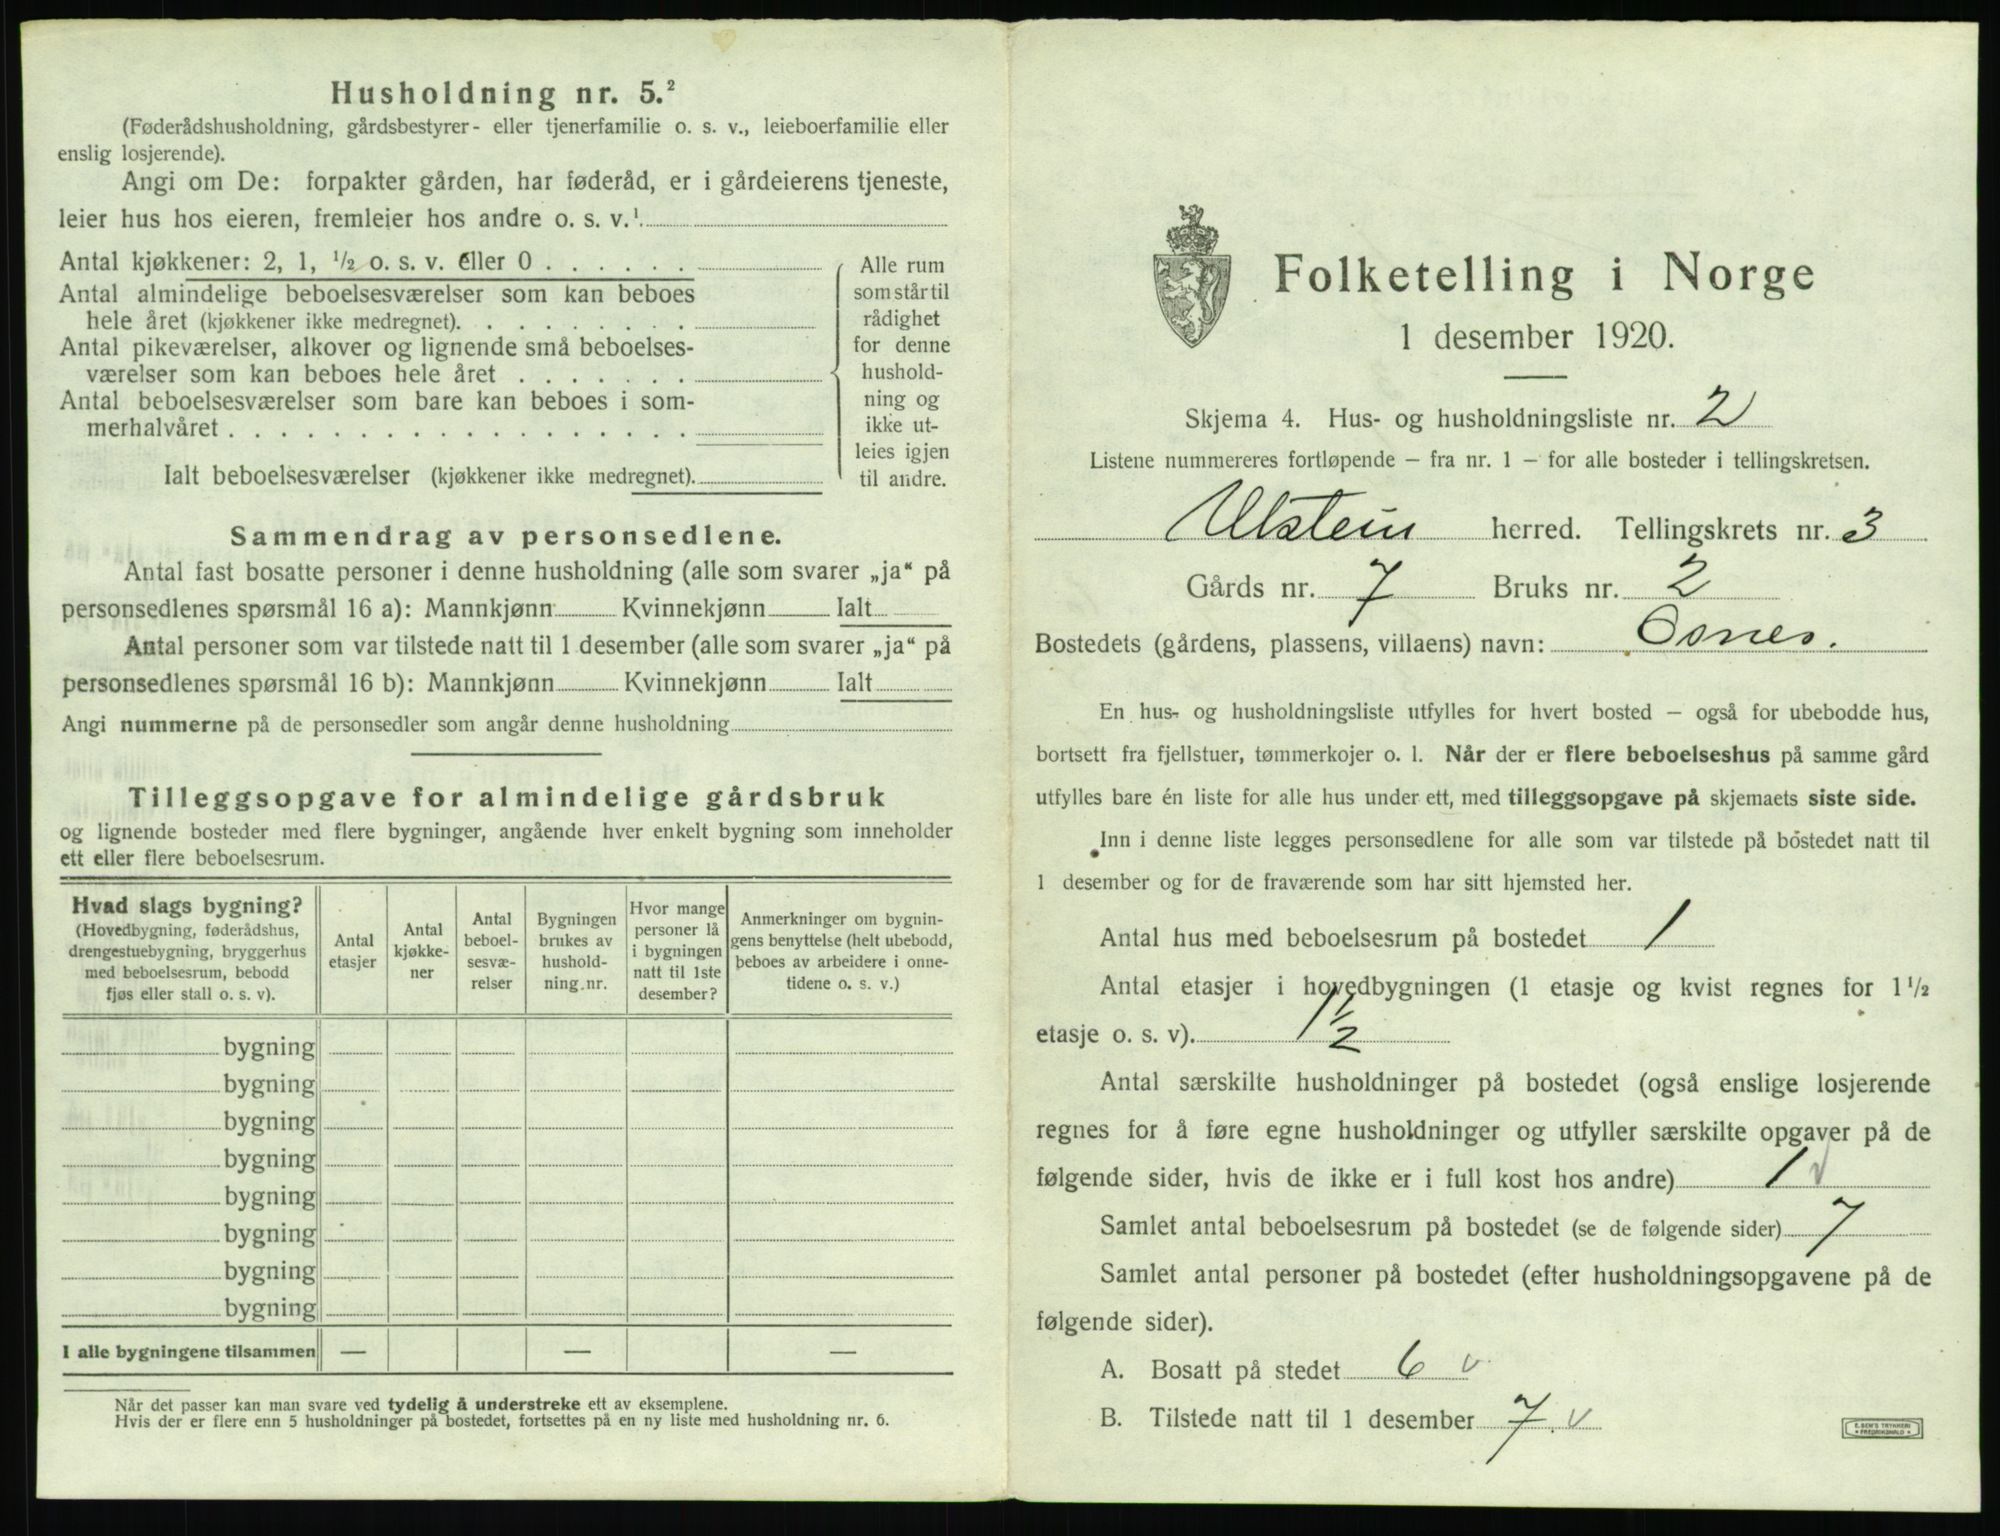 Husholdning nr. 5.²
(Føderådshusholdning, gårdsbestyrer- eller tjenerfamilie o. s. v., leieboerfamilie eller
enslig losjerende).
Angi om De: forpakter gården, har føderåd, er i gårdeierens tjeneste,
leier hus hos eieren, fremleier hos andre o. s. v.¹
Antal kjøkkener: 2, 1, ½ o. s. v. eller 0
Antal almindelige beboelsesværelser som kan beboes
hele året (kjøkkener ikke medregnet).
Antal pikeværelser, alkover og lignende små beboelses-
værelser som kan beboes hele året
Antal beboelsesværelser som bare kan beboes i som-
merhalvåret
Ialt beboelsesværelser (kjøkkener ikke medregnet).
Alle rum
som står til
rådighet
for denne
hushold-
ning og
ikke ut-
leies igjen
til andre.
Sammendrag av personsedlene.
Antal fast bosatte personer i denne husholdning (alle som svarer „ja“ på
personsedlenes spørsmål 16 a): Mannkjønn Kvinnekjønn Ialt
Antal personer som var tilstede natt til 1 desember (alle som svarer „ja“ på
personsedlenes spørsmål 16 b): Mannkjønn Kvinnekjønn Ialt
Angi nummerne på de personsedler som angår denne husholdning
Tilleggsopgave for almindelige gårdsbruk
og lignende bosteder med flere bygninger, angående hver enkelt bygning som inneholder
ett eller flere beboelsesrum.
Hvad slags bygning?
(Hovedbygning, føderådshus,
drengestuebygning, bryggerhus
med beboelsesrum, bebodd
fjøs eller stall o. s. v).
Antal
etasjer
Antal
kjøkke-
ner
Antal
beboel-
sesvæ-
relser
Bygningen
brukes av
hushold-
ning.nr.
Hvor mange
personer lå
i bygningen
natt til 1ste
desember?
Anmerkninger om bygnin-
gens benyttelse (helt ubebodd,
beboes av arbeidere i onne-
tidene o. s. v.)
bygning
bygning
bygning
bygning
bygning
bygning
bygning
bygning
I alle bygningene tilsammen — — —
Når det passer kan man svare ved tydelig å understreke ett av eksemplene.
Hvis der er flere enn 5 husholdninger på bostedet, fortsettes på en ny liste med husholdning nr. 6.
Folketelling i Norge
1 desember 1920.
Skjema 4. Hus- og husholdningsliste nr. 2
Listene nummereres fortløpende – fra nr. 1 – for alle bosteder i tellingskretsen.
Ulstein herred. Tellingskrets nr. 3
Gårds nr. 7 Bruks nr. 2
Bostedets (gårdens, plassens, villaens) navn: Osnes.
En hus- og husholdningsliste utfylles for hvert bosted – også for ubebodde hus,
bortsett fra fjellstuer, tømmerkojer o. l. Når der er flere beboelseshus på samme gård
utfylles bare én liste for alle hus under ett, med tilleggsopgave på skjemaets siste side.
Inn i denne liste legges personsedlene for alle som var tilstede på bostedet natt til
1 desember og for de fraværende som har sitt hjemsted her.
Antal hus med beboelsesrum på bostedet 1
Antal etasjer i hovedbygningen (1 etasje og kvist regnes for 1½
etasje o. s. v). 1½
Antal særskilte husholdninger på bostedet (også enslige losjerende
regnes for å føre egne husholdninger og utfyller særskilte opgaver på de
følgende sider, hvis de ikke er i full kost hos andre) 1 v
Samlet antal beboelsesrum på bostedet (se de følgende sider) 7
Samlet antal personer på bostedet (efter husholdningsopgavene på de
følgende sider).
A. Bosatt på stedet 6 v
B. Tilstede natt til 1 desember 7 v
E. SEM'S TRYKKERI
FREDRIKSHALD